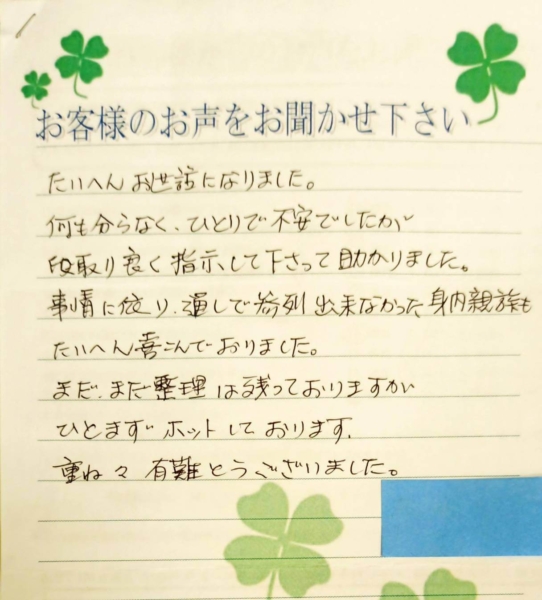 お客様のお声をお聞かせ下さい
たいへんお世話になりました。
何も分らなく、ひとりで不安でしたが
段取り良く指示して下さって助かりました。
事情に依り、通しで参列出来なかった身内親族も
たいへん喜こんでおりました。
まだ、まだ整理は残っておりますが
ひとまずホットしております。
重ね々有難とうございました。